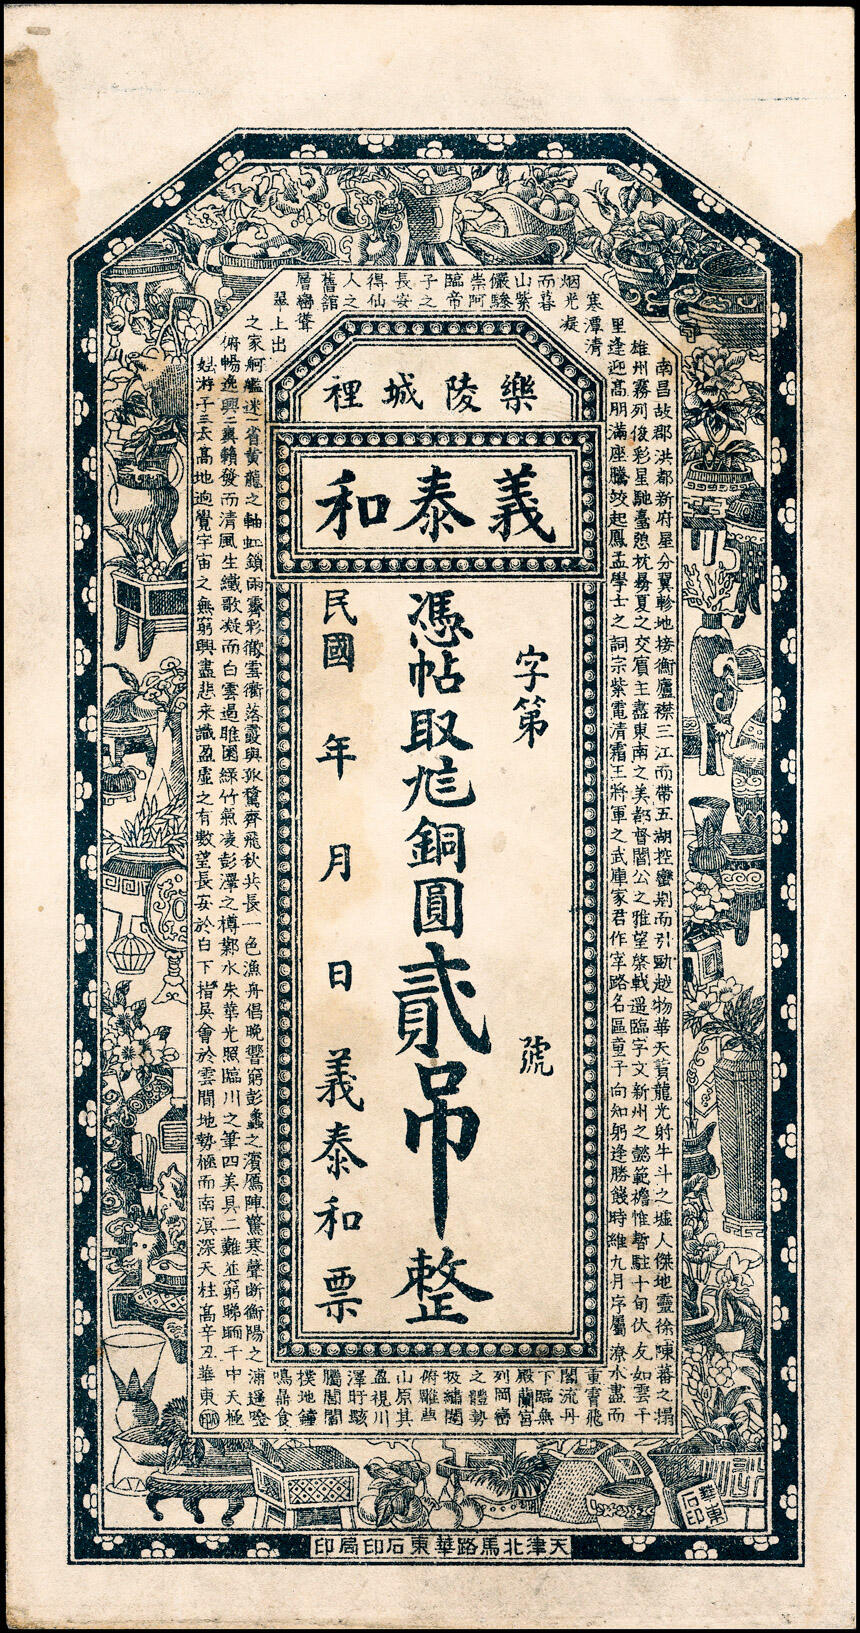 樂陵城裡
義泰和
字第 號
憑帖取銅圓貳吊整
民國 年 月 日 義泰和票
南昌故郡洪都新府星分翼軫地接衡廬襟三江而帶五湖控蠻荆而引甌越物華天寶龍光射牛斗之墟人傑地靈徐陳蕃之榻
雄州霧列俊彩星馳臺憩枕暑夏之交賓主盡東南之美都督閻公之雅望棨戟遥臨字文新州之懿範襜惟暫駐十旬伏友如雲千
里逢迎高朋滿座騰蛟起鳳孟學士之詞宗紫電清霜王將軍之武庫家君作宰路名區童子向知躬逢勝餞時維九月序屬潦水盡而
寒潭清
烟光凝
而暮
山紫
儼驂
崇阿
臨帝
子之
長安
得仙
人之
舊館
層巒聳
翠上出
重霄飛
閣流丹
下臨無
殿蘭宮
列岡巒
之體勢
披繡闥
俯雕甍
山原其
盈視川
澤盱駭
閭閻
撲地鐘
鳴鼎食
之家舸艦迷一省黃龍之軸虹銷雨霽彩徹雲衢落霞與孤鶩齊飛秋共長一色漁舟倡晚響窮彭蠡之濱雁陣驚寒聲斷衡陽之浦遥吟
俯暢逸興二爽籟發而清風生纖歌凝而白雲遏睢園綠竹氣凌彭澤之樽鄴水朱華光照臨川之筆四美具二難並窮睇眄于中天極
娛游于三太高地迥覺宇宙之無窮興盡悲來識盈虛之有數望長安於白下指吳會於雲間地勢極而南溟深天柱高辛丑華東印
華東石印
天津北馬路華東石印局印